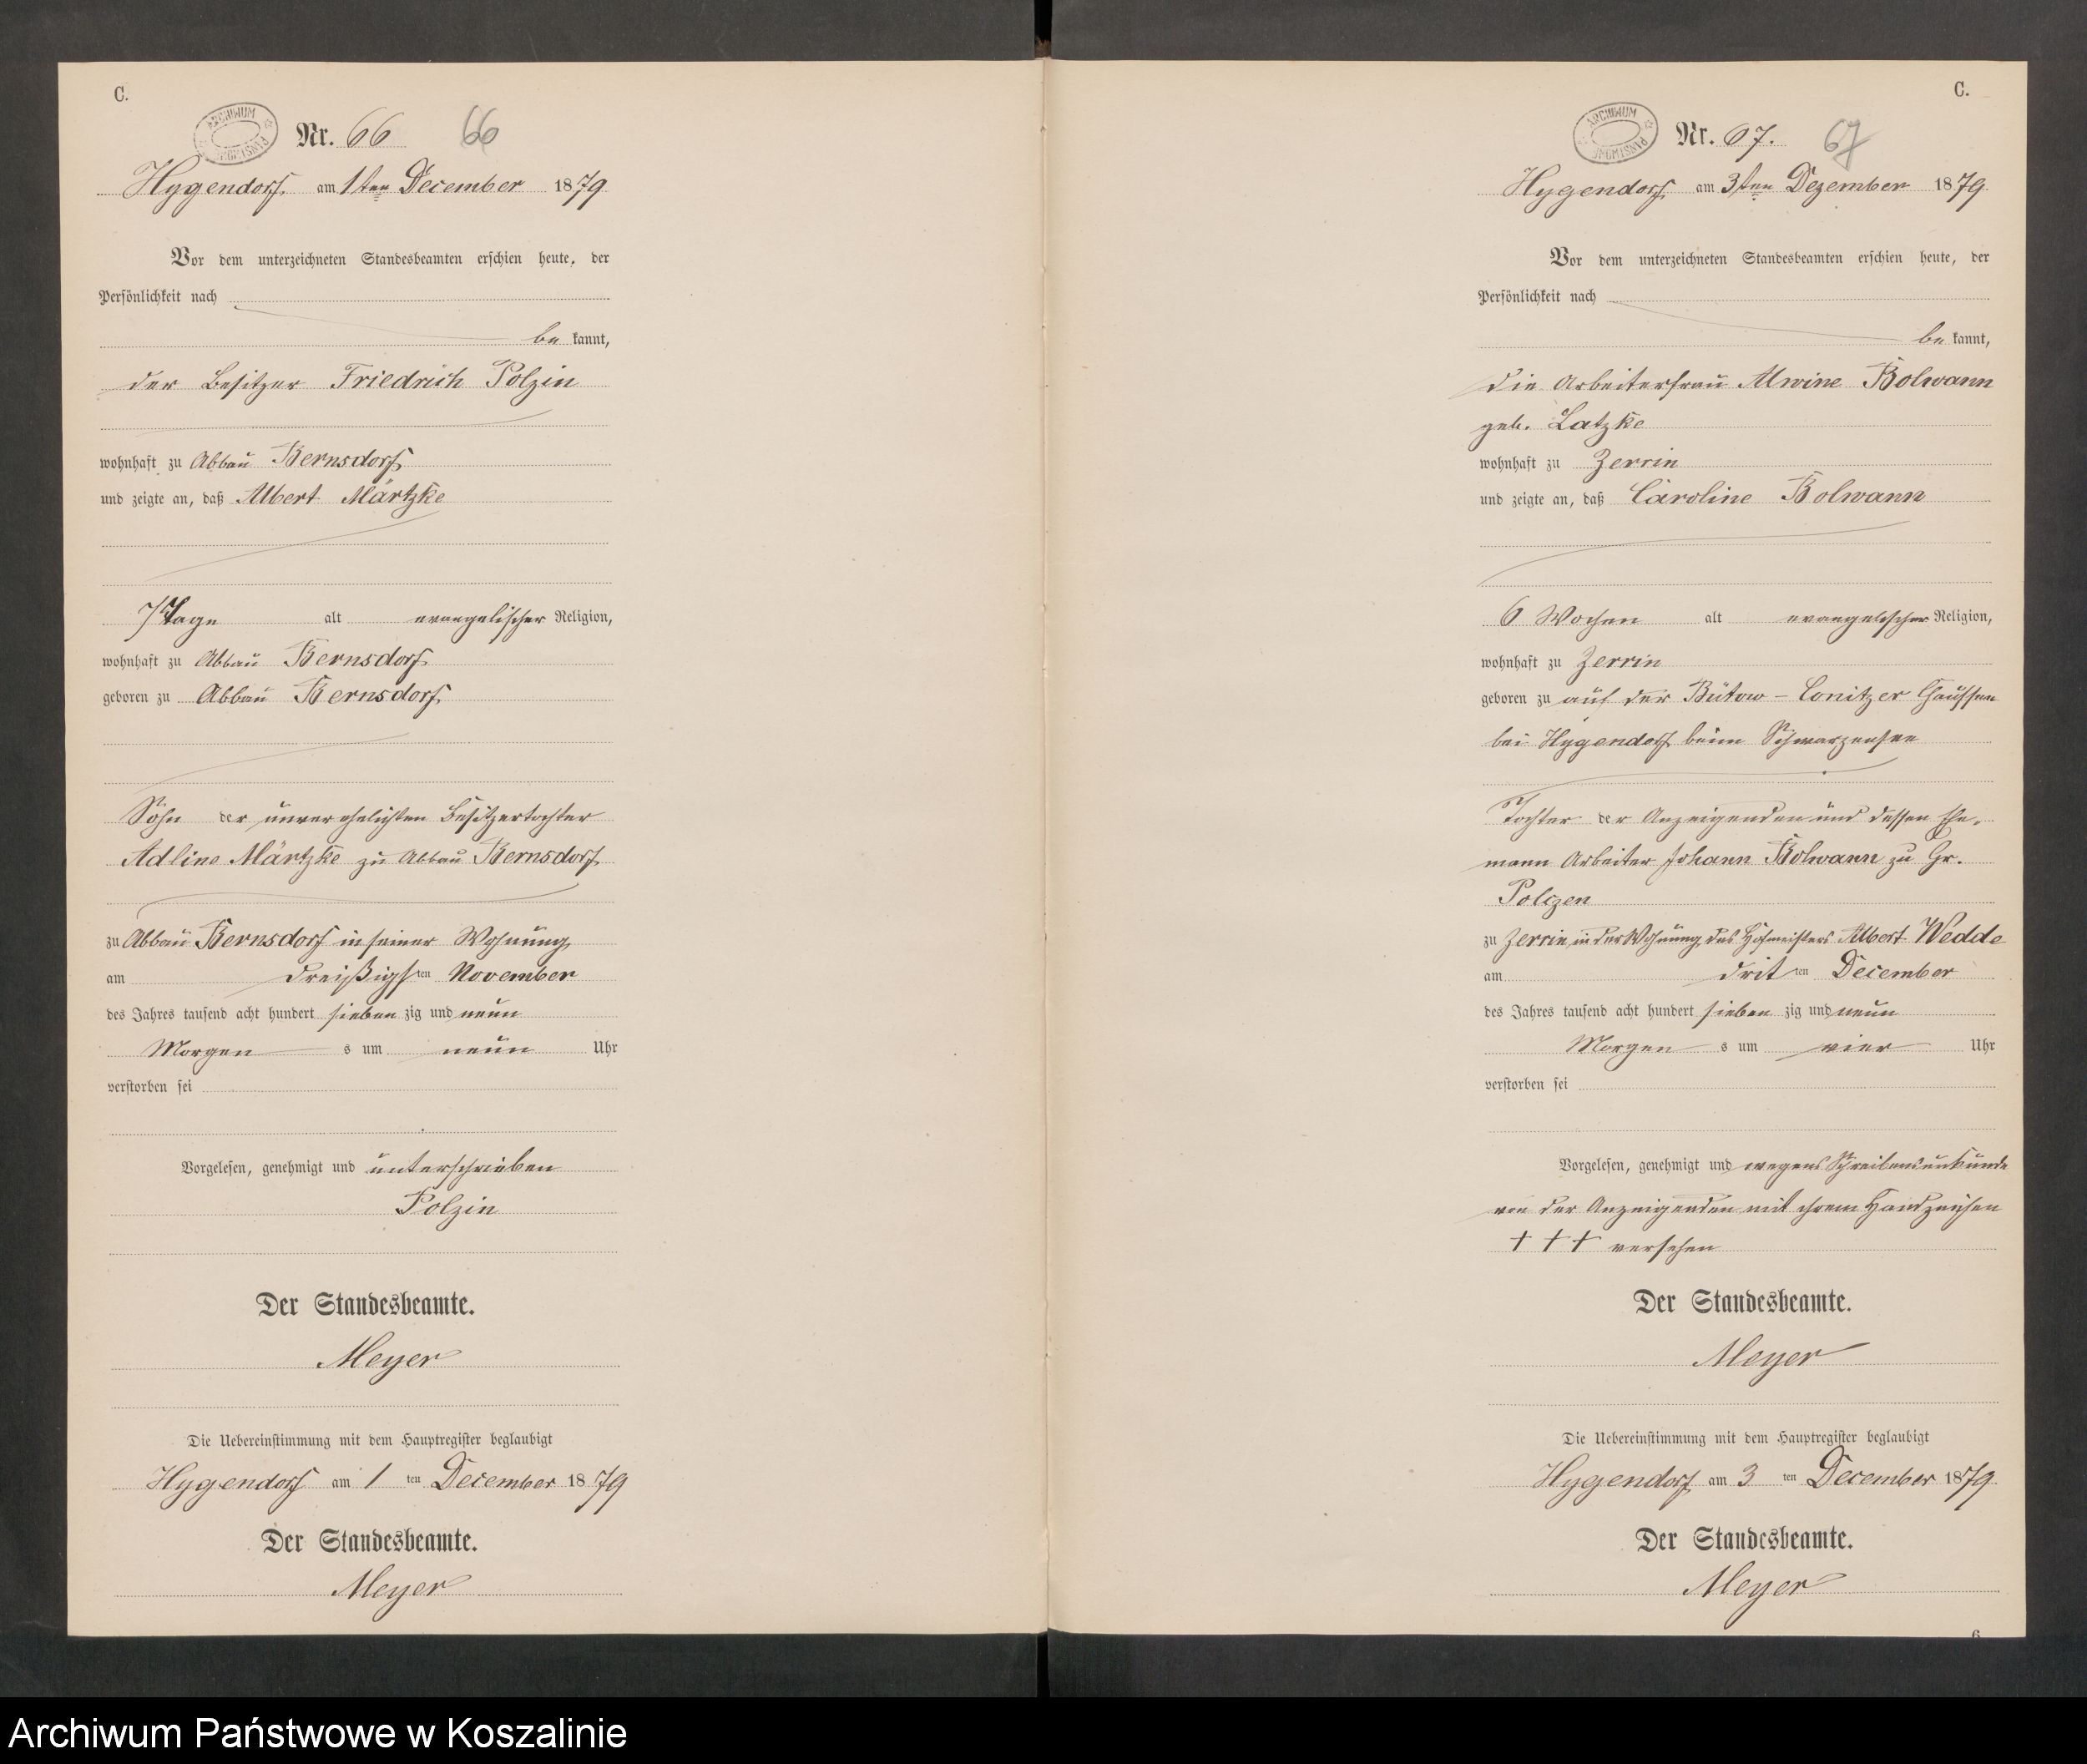 C.
ARCHIWUM PAŃSTWOWE
Nr. 66 66
Hygendorf am 1ten December 1879
Vor dem unterzeichneten Standesbeamten erschien heute, der
Persönlichkeit nach
be kannt,
der Besitzer Friedrich Polzin
wohnhaft zu Abbau Bernsdorf
und zeigte an, daß Albert Märtzke
7 Tage alt evangelischer Religion,
wohnhaft zu Abbau Bernsdorf
geboren zu Abbau Bernsdorf
Sohn der unverehelichten Besitzertochter
Adline Märtzke zu Abbau Bernsdorf
zu Abbau Bernsdorf in seiner Wohnung
am dreißigsten November
des Jahres tausend acht hundert sieben zig und neun
Morgen s um neun Uhr
verstorben sei
Vorgelesen, genehmigt und unterschrieben
Polzin
Der Standesbeamte.
Meyer
Die Uebereinstimmung mit dem Hauptregister beglaubigt
Hygendorf am 1 ten December 1879
Der Standesbeamte.
Meyer
C.
ARCHIWUM PAŃSTWOWE
Nr. 67. 67
Hygendorf am 3ten Dezember 1879
Vor dem unterzeichneten Standesbeamten erschien heute, der
Persönlichkeit nach
be kannt,
die Arbeiterfrau Alwine Bolwann
geb. Latzke
wohnhaft zu Zerrin
und zeigte an, daß Caroline Bolwann
6 Wochen alt evangelischer Religion,
wohnhaft zu Zerrin
geboren zu auf der Bütow - Conitzer Chaussee
bei Hygendorf beim Schwarzensee
Tochter der Anzeigenden und dessen Ehe-
mann Arbeiter Johann Bolwann zu Gr.
Polczen
zu Zerrin in der Wohnung des Hofmeisters Albert Wedde
am dritten December
des Jahres tausend acht hundert sieben zig und neun
Morgen s um vier Uhr
verstorben sei
Vorgelesen, genehmigt und wegens Schreibensunkunde
von der Anzeigenden mit ihrem Handzeichen
+ + + versehen
Der Standesbeamte.
Meyer
Die Uebereinstimmung mit dem Hauptregister beglaubigt
Hygendorf am 3 ten December 1879
Der Standesbeamte.
Meyer
6
Archiwum Państwowe w Koszalinie